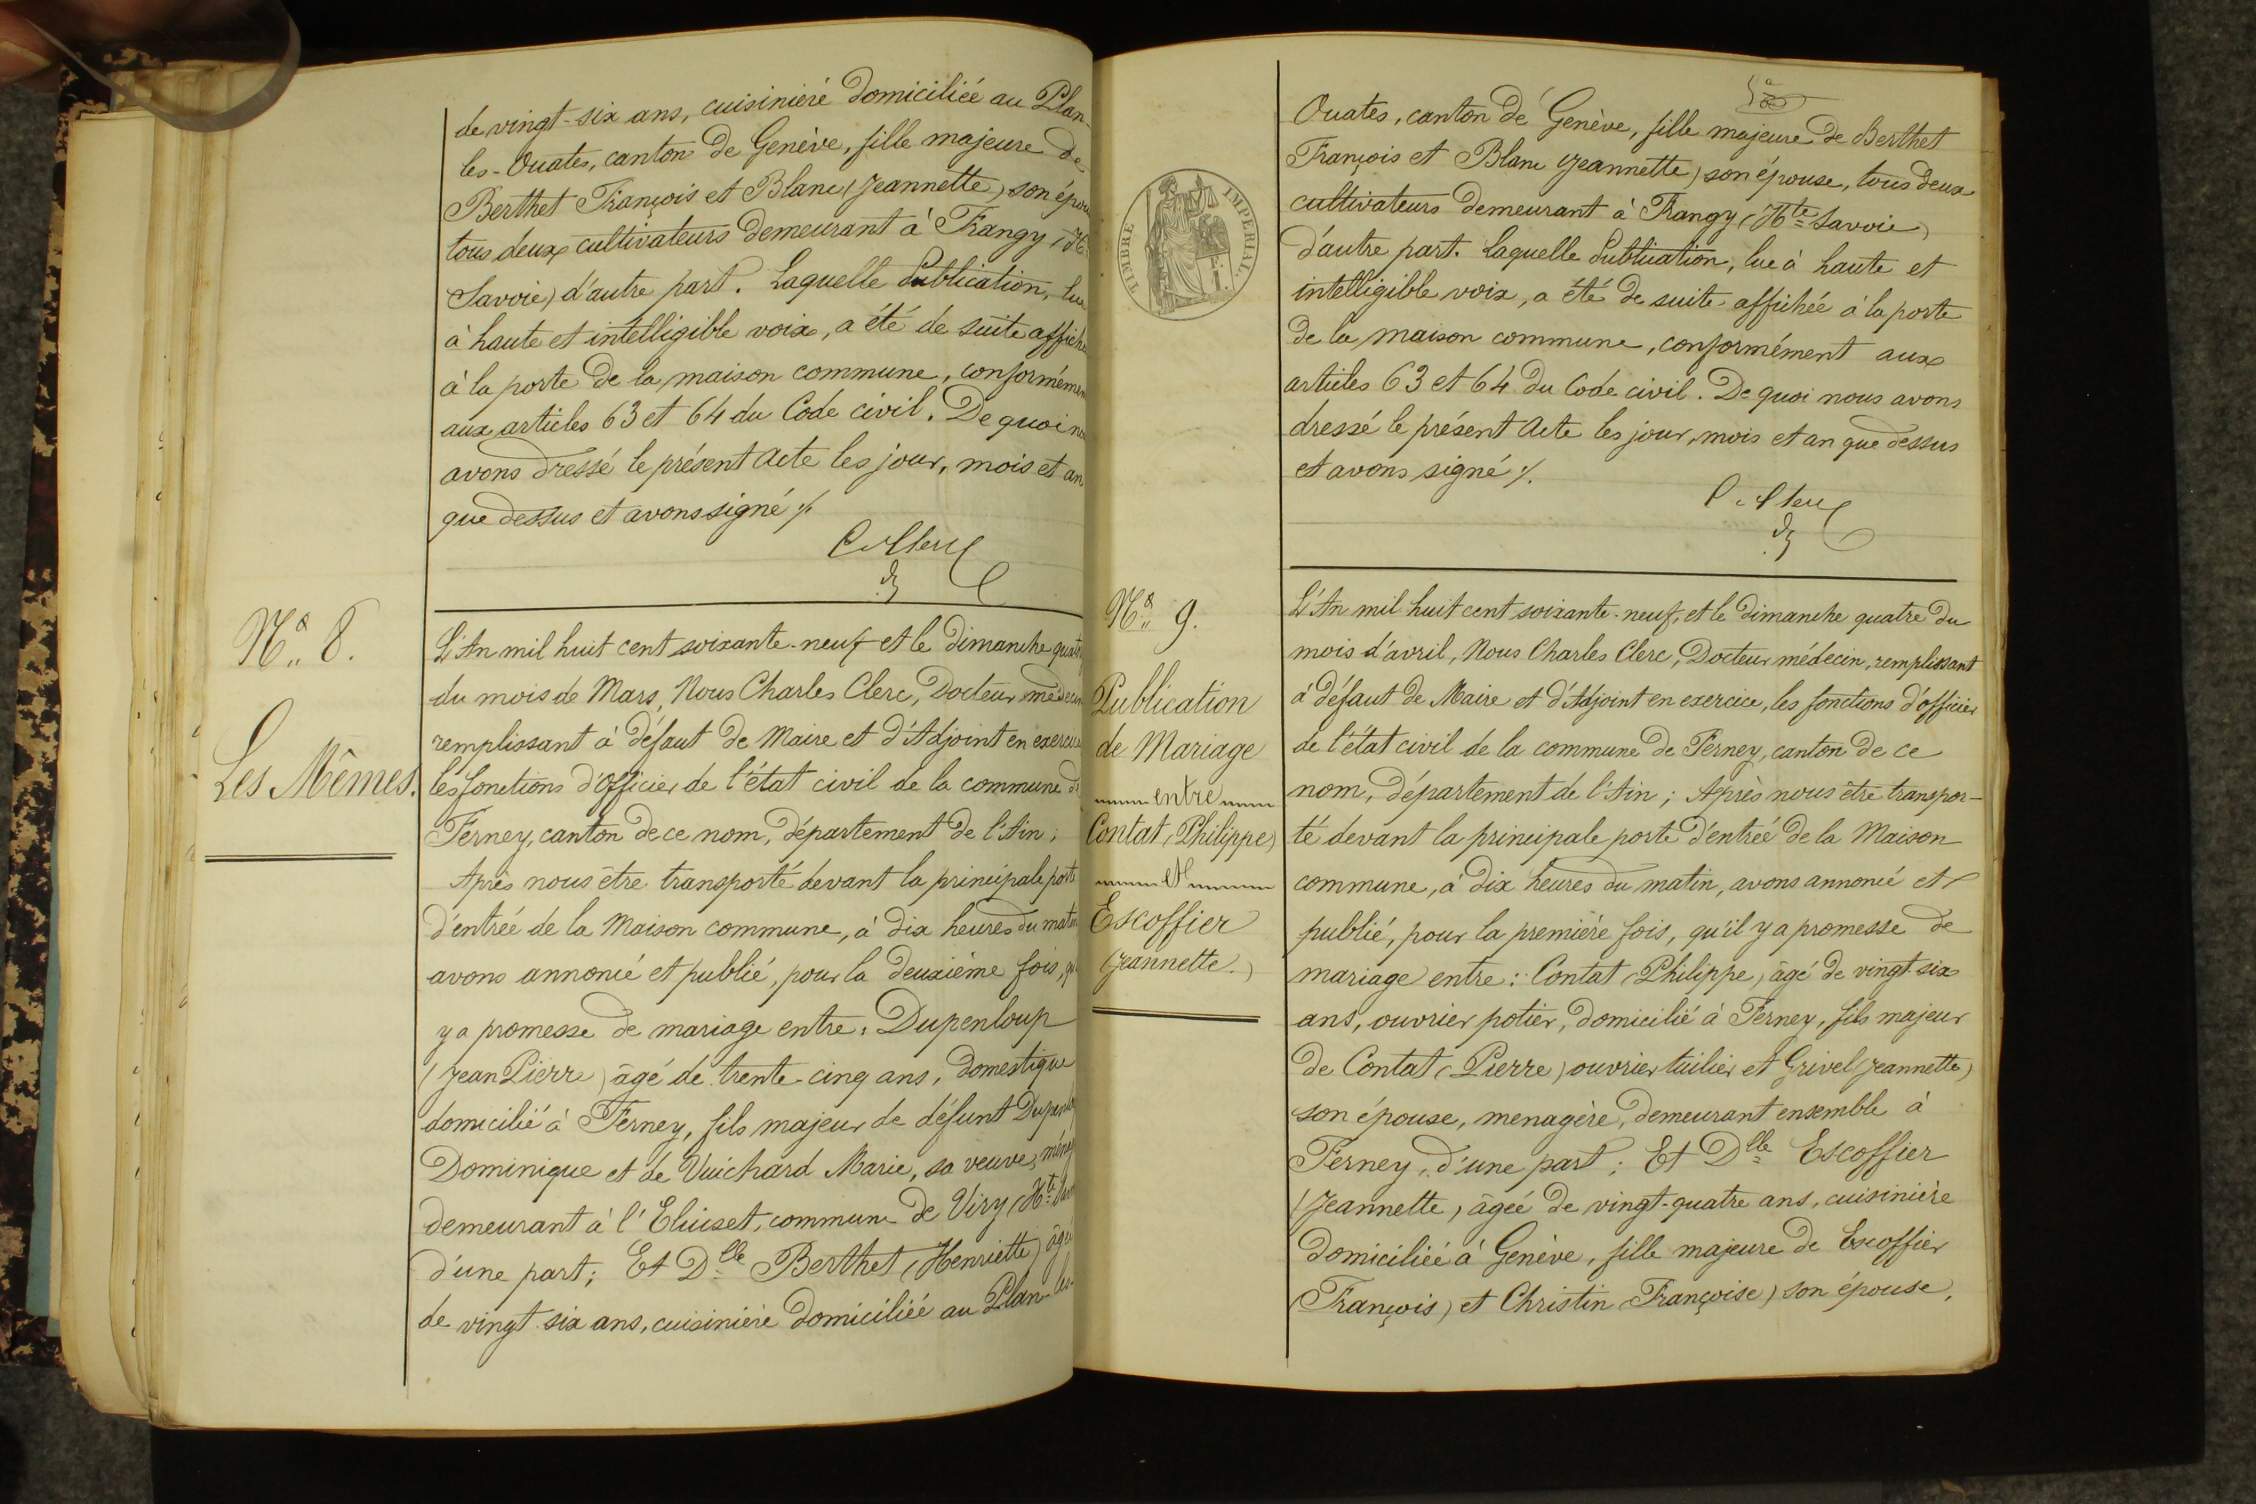 de vingt-six ans, cuisinière domiciliée au Plan-
les-Ouates, canton de Genève, fille majeure de
Berthet François et Blanc (Jeannette) son épou
tous deux cultivateurs demeurant à Frangy (Hte
Savoie) d'autre part. Laquelle Publication, lue
à haute et intelligible voix, a été de suite affiché
à la porte de la maison commune, conformémen
aux articles 63 et 64 du Code civil. De quoi no
avons dressé le présent Acte les jour, mois et an
que dessus et avons signé ./.
C. Clerc
No 8.
Les Mêmes.
L'An mil huit cent soixante-neuf et le dimanche quatr
du mois de Mars, Nous Charles Clerc, Docteur médecin
remplissant à défaut de Maire et d'Adjoint en exercice
les fonctions d'Officier de l'état civil de la commune de
Ferney, canton de ce nom, département de l'Ain;
Après nous être transporté devant la principale porte
d'entrée de la Maison commune, à dix heures du matin
avons annoncé et publié, pour la deuxième fois, qu
y a promesse de mariage entre: Dupenloup
(Jean Pierre) âgé de trente-cinq ans, domestique
domicilié à Ferney, fils majeur de défunt Dupenlou
Dominique et de Vuichard Marie, sa veuve, ménag
demeurant à l'Eluiset, commune de Viry (Hte Savoi
d'une part; Et Dlle Berthet (Henriette) âgée
de vingt six ans, cuisinière domiciliée au Plan-les-
TIMBRE IMPERIAL
Ouates, canton de Genève, fille majeure de Berthet
François et Blanc (Jeannette) son épouse, tous deux
cultivateurs demeurant à Frangy (Hte Savoie)
d'autre part. Laquelle Publication, lue à haute et
intelligible voix, a été de suite affichée à la porte
de la maison commune, conformément aux
articles 63 et 64 du Code civil. De quoi nous avons
dressé le présent Acte les jour, mois et an que dessus
et avons signé ./.
C. Clerc
No 9.
Publication
de Mariage
entre
Contat (Philippe)
et
Escoffier
(Jeannette.)
L'An mil huit cent soixante-neuf, et le dimanche quatre du
mois d'avril, Nous Charles Clerc, Docteur médecin, remplissant
à défaut de Maire et d'Adjoint en exercice, les fonctions d'officier
de l'état civil de la commune de Ferney, canton de ce
nom, département de l'Ain; Après nous être transpor-
té devant la principale porte d'entrée de la Maison
commune, à dix heures du matin, avons annoncé et
publié, pour la première fois, qu'il y a promesse de
mariage entre: Contat (Philippe) âgé de vingt-six
ans, ouvrier potier, domicilié à Ferney, fils majeur
de Contat (Pierre) ouvrier tuilier et Grivel (Jeannette)
son épouse, menagère, demeurant ensemble à
Ferney, d'une part; Et Dlle Escoffier
(Jeannette) âgée de vingt-quatre ans, cuisinière
domiciliée à Genève, fille majeure de Escoffier
(François) et Christin (Françoise) son épouse,